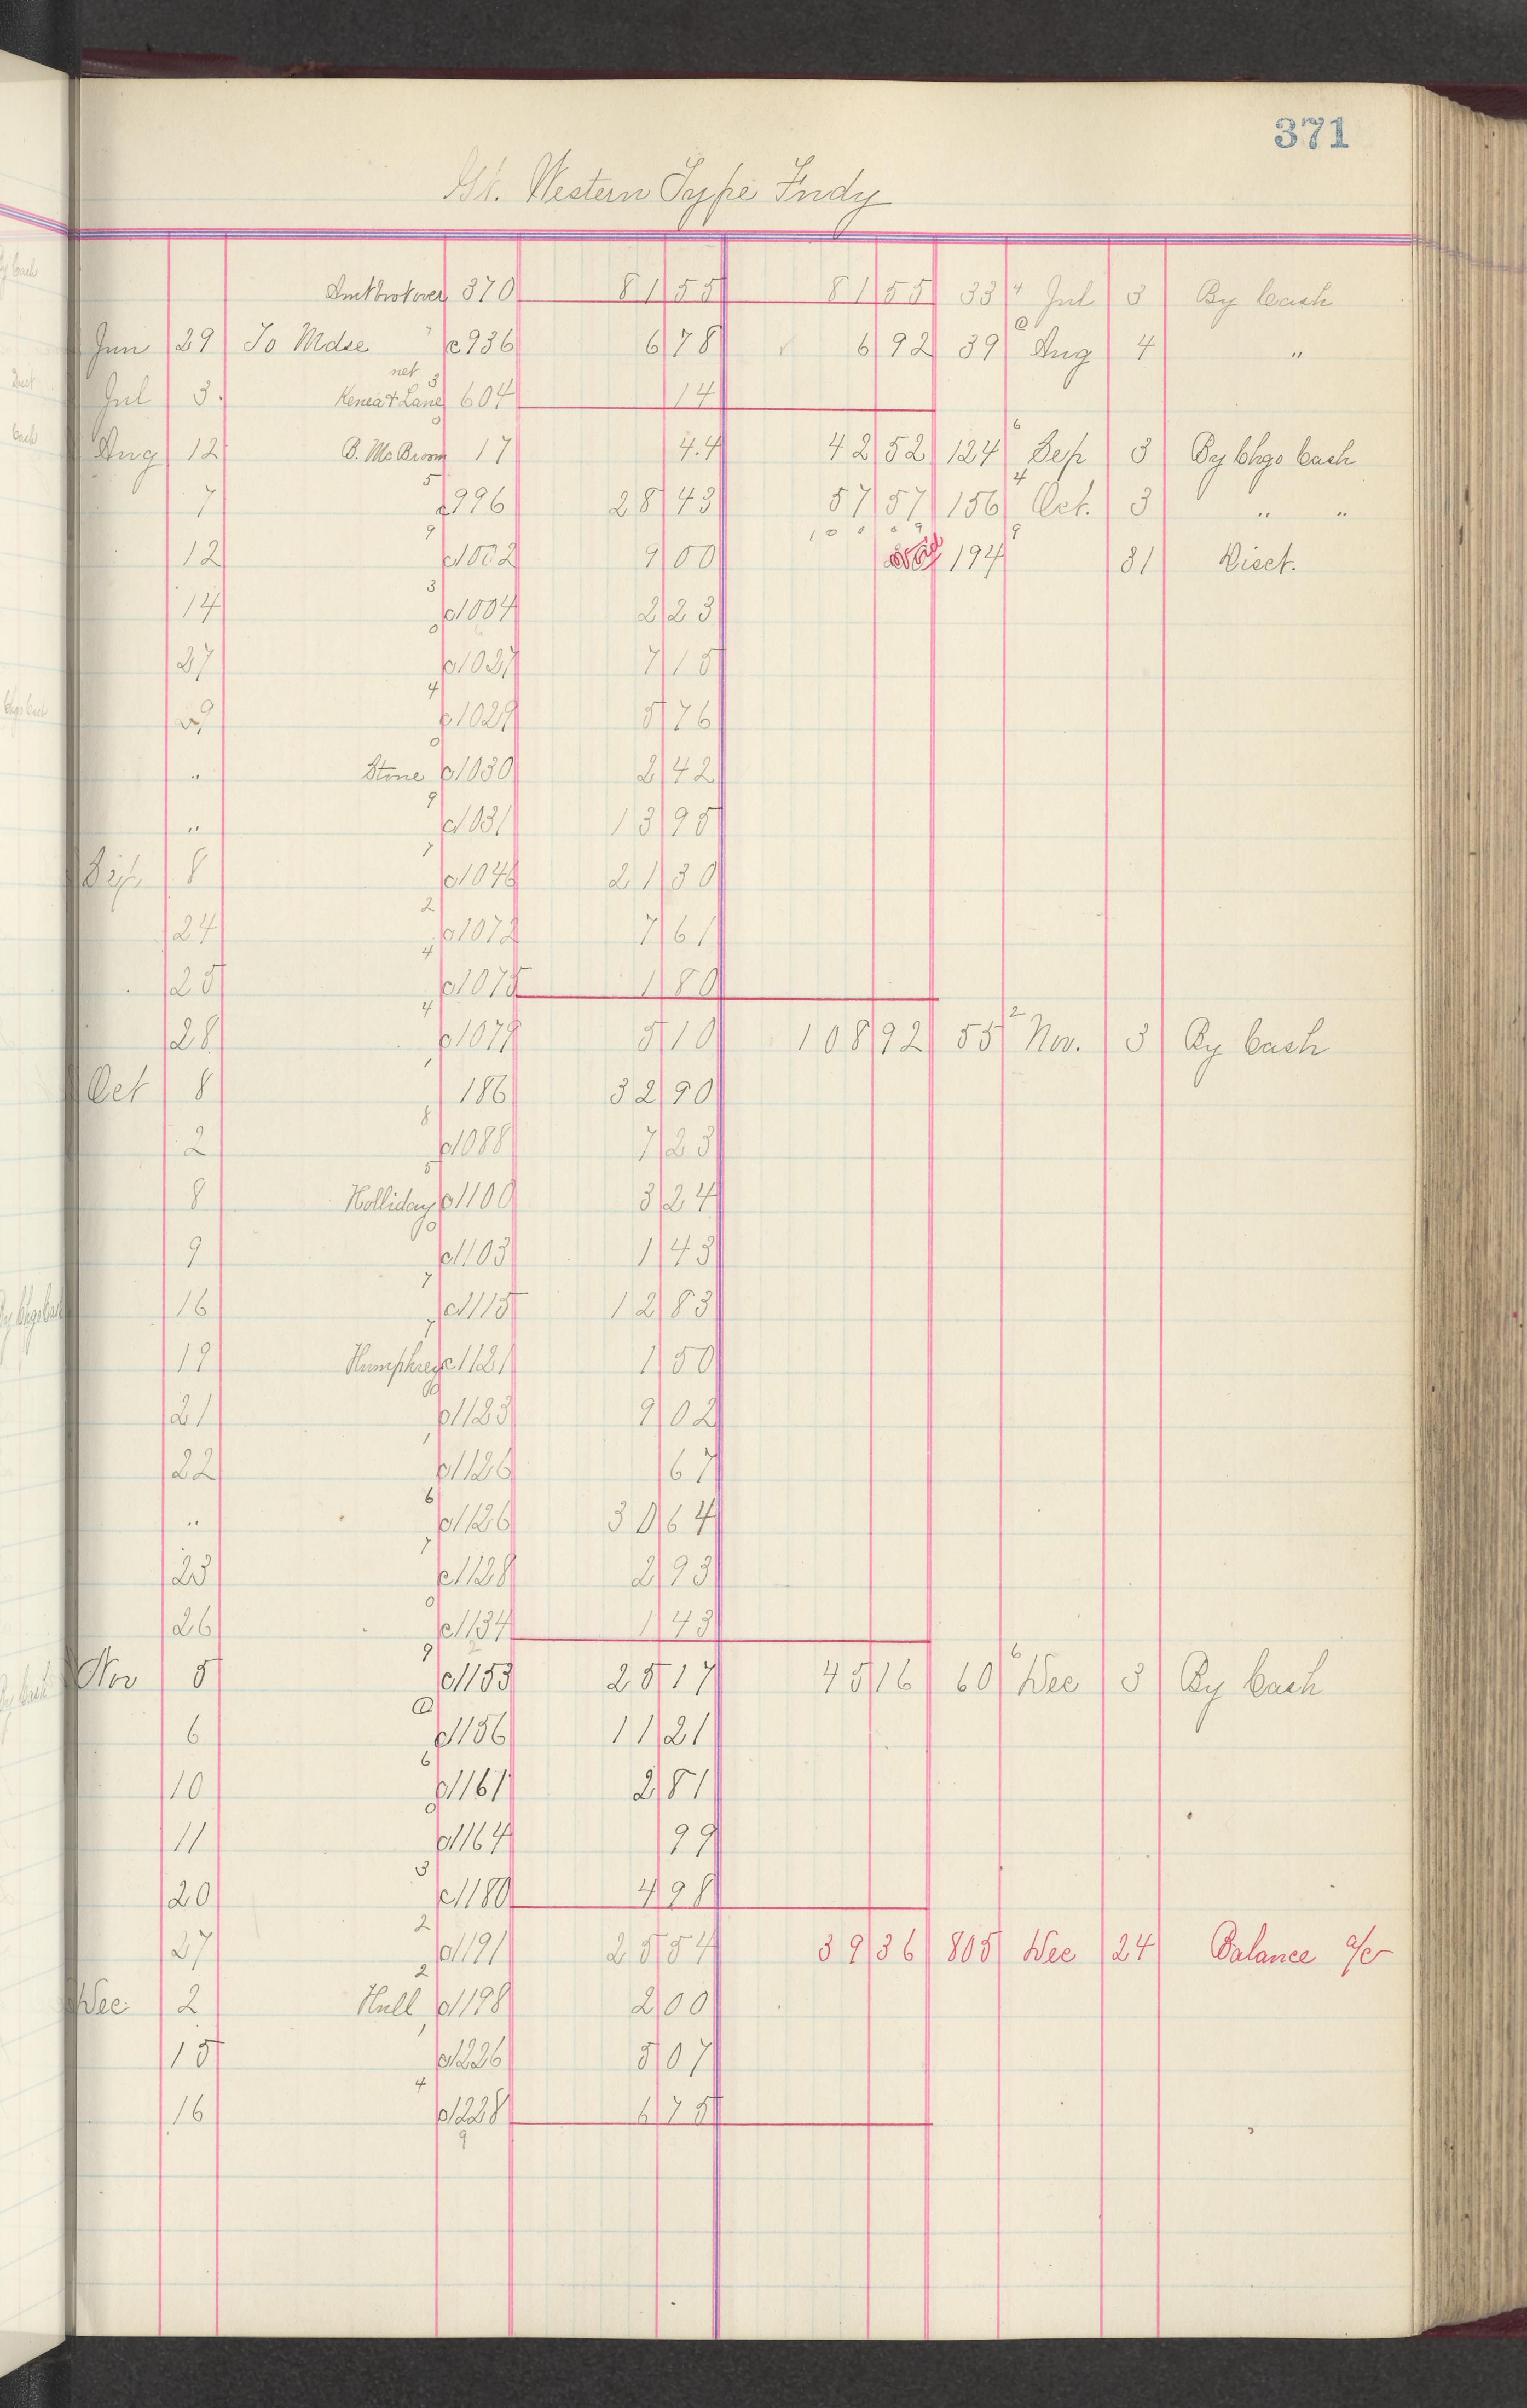 371
Gt. Western Type Fndy
Amt brot over 370 81 55 81 55 33 4 Jul 3 By Cash
Jun 29 To Mdse c936 6 78 6 92 39 @ Aug 4 "
Jul 3. Kenea & Lane net 3 604 14
Aug 12 B. McBroom 17 4.4 42 52 124 6 Sep 3 By Chgo Cash
7 5 c996 28 43 57 57 156 4 Oct. 3 " "
12 9 c1002 9 00 194 9 31 Disct.
14 3 c1004 2 23
27 0 c1027 7 15
29 4 c1029 5 76
" Stone 0 c1030 2 42
" 9 c1031 13 95
Sep 8 7 c1046 21 30
24 2 c1072 7 61
25 4 c1075 1 80
28 4 c1079 5 10 108 92 55 2 Nov. 3 By Cash
Oct 8 1 186 32 90
2 8 c1088 7 23
8 Holliday 5 c1100 3 24
9 0 c1103 1 43
16 7 c1115 12 83
19 Humphrey 7 c1121 1 50
21 c1123 9 02
22 1 c1126 67
" 6 c1126 30 64
23 7 c1128 2 93
26 0 c1134 1 43
Nov 5 9 c1153 25 17 45 16 60 6 Dec 3 By Cash
6 @ c1156 11 21
10 6 c1161 2 81
11 0 c1164 99
20 3 c1180 4 98
27 2 c1191 25 54 39 36 805 Dec 24 Balance a/c
Dec 2 Hull 2 c1198 2 00
15 1 c1226 5 07
16 4 c1228 6 75
9